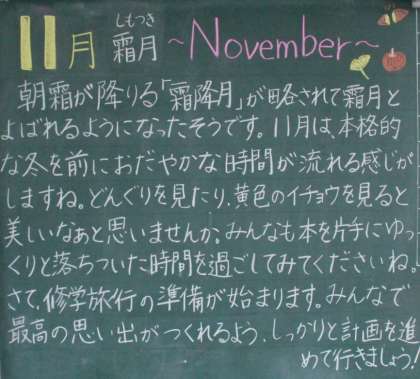 11月 霜月 ~November~
しもつき
朝霜が降りる「霜降月」が略されて霜月と
よばれるようになったそうです。11月は、本格的
な冬を前におだやかな時間が流れる感じが
しますね。どんぐりを見たり、黄色のイチョウを見ると
美しいなぁと思いませんか。みんなも本を片手にゆっ
くりと落ちついた時間を過ごしてみてくださいね。
さて、修学旅行の準備が始まります。みんなで
最高の思い出がつくれるよう、しっかりと計画を進
めて行きましょう!